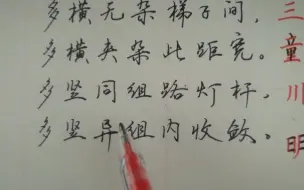 多横无杂梯子间,
多横夹杂此距宽。
多竖同组路灯杆,
多竖异组内收敛。
三童川明